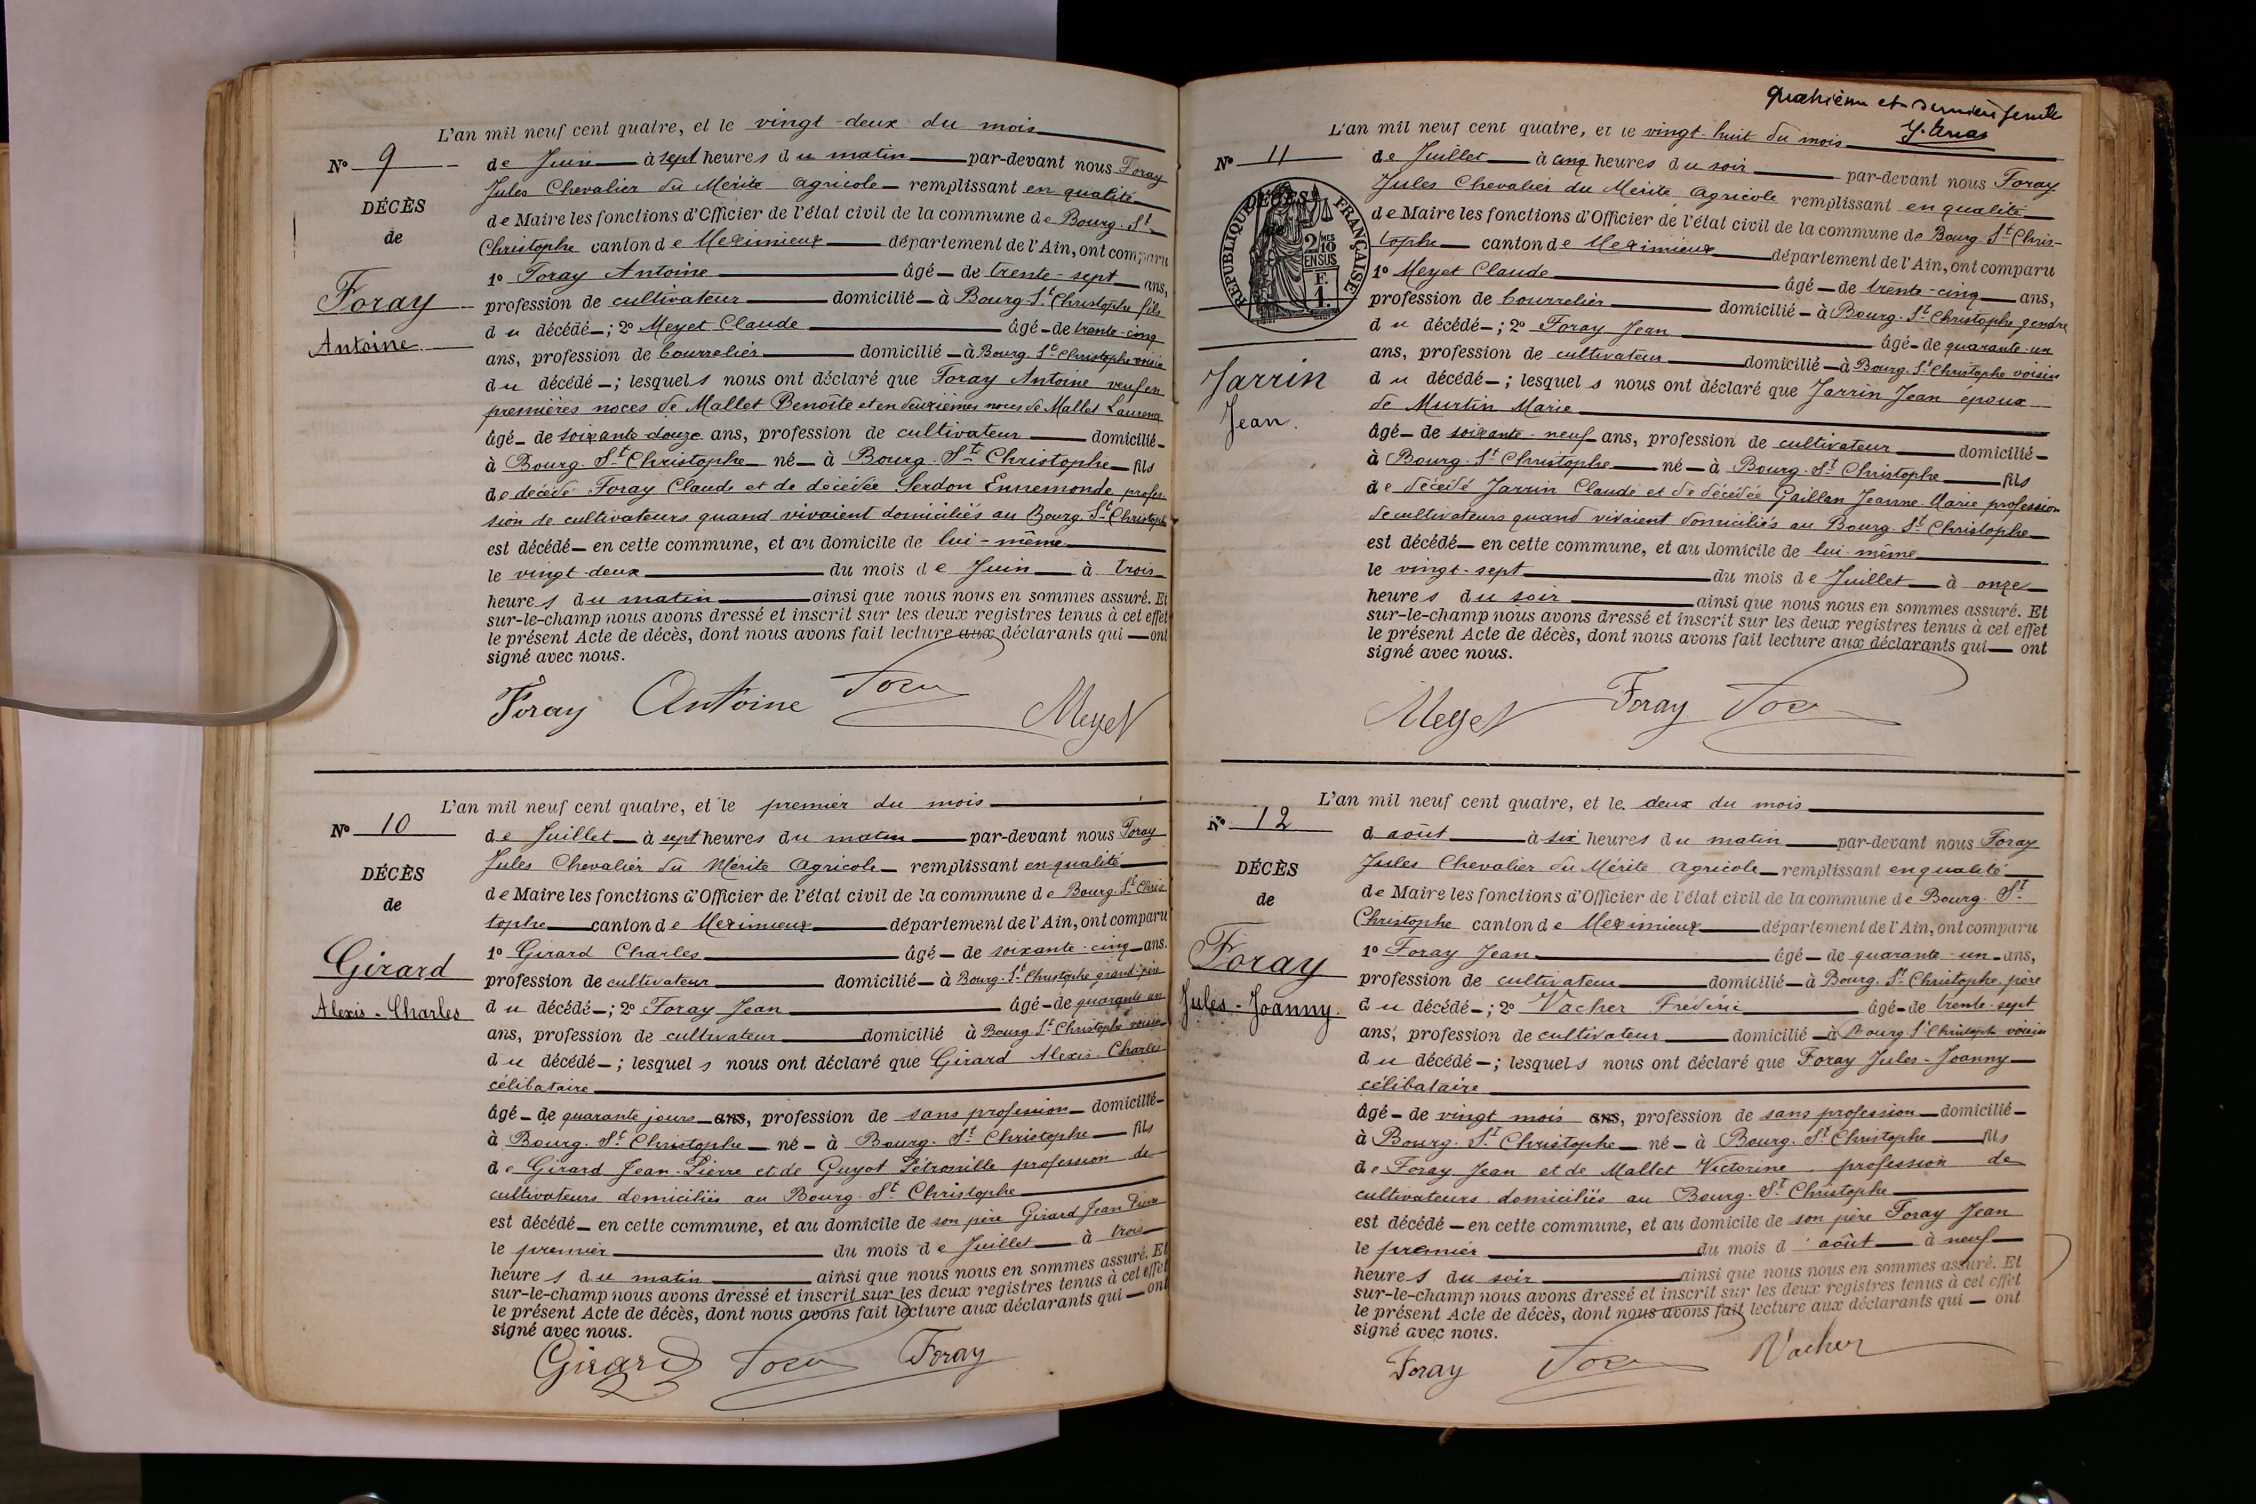 L'an mil neuf cent quatre, et le vingt-deux du mois
No 9
de Juin à sept heures du matin par-devant nous Foray
Jules Chevalier du Mérite Agricole remplissant en qualité
DÉCÈS
de Maire les fonctions d'Officier de l'état civil de la commune de Bourg-St-
de
Christophe canton de Meximieux département de l'Ain, ont comparu
1o Foray Antoine âgé de trente-sept ans,
Foray
profession de cultivateur domicilié à Bourg-St-Christophe fils
du décédé; 2o Meyet Claude âgé de trente-cinq
Antoine
ans, profession de bourrelier domicilié à Bourg-St-Christophe voisin
du décédé; lesquels nous ont déclaré que Foray Antoine veuf en
premières noces de Mallet Benoîte et en deuxièmes noces de Mallet Laurence
âgé de soixante-douze ans, profession de cultivateur domicilié
à Bourg-St-Christophe né à Bourg-St-Christophe fils
de décédé Foray Claude et de décédée Serdon Ennemonde profes-
sion de cultivateurs quand vivaient domiciliés au Bourg-St-Christophe
est décédé en cette commune, et au domicile de lui-même
le vingt-deux du mois de Juin à trois
heures du matin ainsi que nous nous en sommes assuré. Et
sur-le-champ nous avons dressé et inscrit sur les deux registres tenus à cet effet
le présent Acte de décès, dont nous avons fait lecture aux déclarants qui ont
signé avec nous.
Foray Antoine Foray Meyet
L'an mil neuf cent quatre, et le premier du mois
No 10
de Juillet à sept heures du matin par-devant nous Foray
Jules Chevalier du Mérite Agricole remplissant en qualité
DÉCÈS
de Maire les fonctions d'Officier de l'état civil de la commune de Bourg-St-Chris
de
tophe canton de Meximieux département de l'Ain, ont comparu
1o Girard Charles âgé de soixante-cinq ans.
Girard
profession de cultivateur domicilié à Bourg-St-Christophe grand-père
Alexis-Charles
du décédé; 2o Foray Jean âgé de quarante un
ans, profession de cultivateur domicilié à Bourg-St-Christophe voisin
du décédé; lesquels nous ont déclaré que Girard Alexis-Charles
célibataire
âgé de quarante jours ans, profession de sans profession domicilié
à Bourg-St-Christophe né à Bourg-St-Christophe fils
de Girard Jean-Pierre et de Guyot Pétronille profession de
cultivateurs domiciliés au Bourg-St-Christophe
est décédé en cette commune, et au domicile de son père Girard Jean Pierre
le premier du mois de Juillet à trois
heures du matin ainsi que nous nous en sommes assuré. Et
sur-le-champ nous avons dressé et inscrit sur les deux registres tenus à cet effet
le présent Acte de décès, dont nous avons fait lecture aux déclarants qui ont
signé avec nous.
Girard Foray Foray
Quatrième et dernière feuille
L'an mil neuf cent quatre, et le vingt-huit du mois
No 11
de Juillet à cinq heures du soir par-devant nous Foray
Jules Chevalier du Mérite Agricole remplissant en qualité
DÉCÈS
RÉPUBLIQUE FRANÇAISE
2/10MES
EN SUS
F.
1.
de Maire les fonctions d'Officier de l'état civil de la commune de Bourg-St-Chris-
tophe canton de Meximieux département de l'Ain, ont comparu
1o Meyet Claude âgé de trente-cinq ans,
profession de bourrelier domicilié à Bourg-St-Christophe gendre
du décédé; 2o Foray Jean âgé de quarante-un
ans, profession de cultivateur domicilié à Bourg-St-Christophe voisin
Jarrin
du décédé; lesquels nous ont déclaré que Jarrin Jean époux
Jean.
de Murtin Marie
âgé de soixante-neuf ans, profession de cultivateur domicilié
à Bourg-St-Christophe né à Bourg-St-Christophe fils
de décédé Jarrin Claude et de décédée Gaillan Jeanne-Marie profession
de cultivateurs quand vivaient domiciliés au Bourg-St-Christophe
est décédé en cette commune, et au domicile de lui-même
le vingt-sept du mois de Juillet à onze
heures du soir ainsi que nous nous en sommes assuré. Et
sur-le-champ nous avons dressé et inscrit sur les deux registres tenus à cet effet
le présent Acte de décès, dont nous avons fait lecture aux déclarants qui ont
signé avec nous.
Meyet Foray Foray
L'an mil neuf cent quatre, et le deux du mois
No 12
d août à six heures du matin par-devant nous Foray
Jules Chevalier du Mérite Agricole remplissant en qualité
DÉCÈS
de Maire les fonctions d'Officier de l'état civil de la commune de Bourg-St-
de
Christophe canton de Meximieux département de l'Ain, ont comparu
1o Foray Jean âgé de quarante-un ans,
Foray
profession de cultivateur domicilié à Bourg-St-Christophe père
Jules-Joanny.
du décédé; 2o Vacher Frédéric âgé de trente-sept
ans, profession de cultivateur domicilié à Bourg-St-Christophe voisin
du décédé; lesquels nous ont déclaré que Foray Jules-Joanny
célibataire
âgé de vingt mois ans, profession de sans profession domicilié
à Bourg-St-Christophe né à Bourg-St-Christophe fils
de Foray Jean et de Mallet Victorine profession de
cultivateurs domiciliés au Bourg-St-Christophe
est décédé en cette commune, et au domicile de son père Foray Jean
le premier du mois d août à neuf
heures du soir ainsi que nous nous en sommes assuré. Et
sur-le-champ nous avons dressé et inscrit sur les deux registres tenus à cet effet
le présent Acte de décès, dont nous avons fait lecture aux déclarants qui ont
signé avec nous.
Foray Foray Vacher